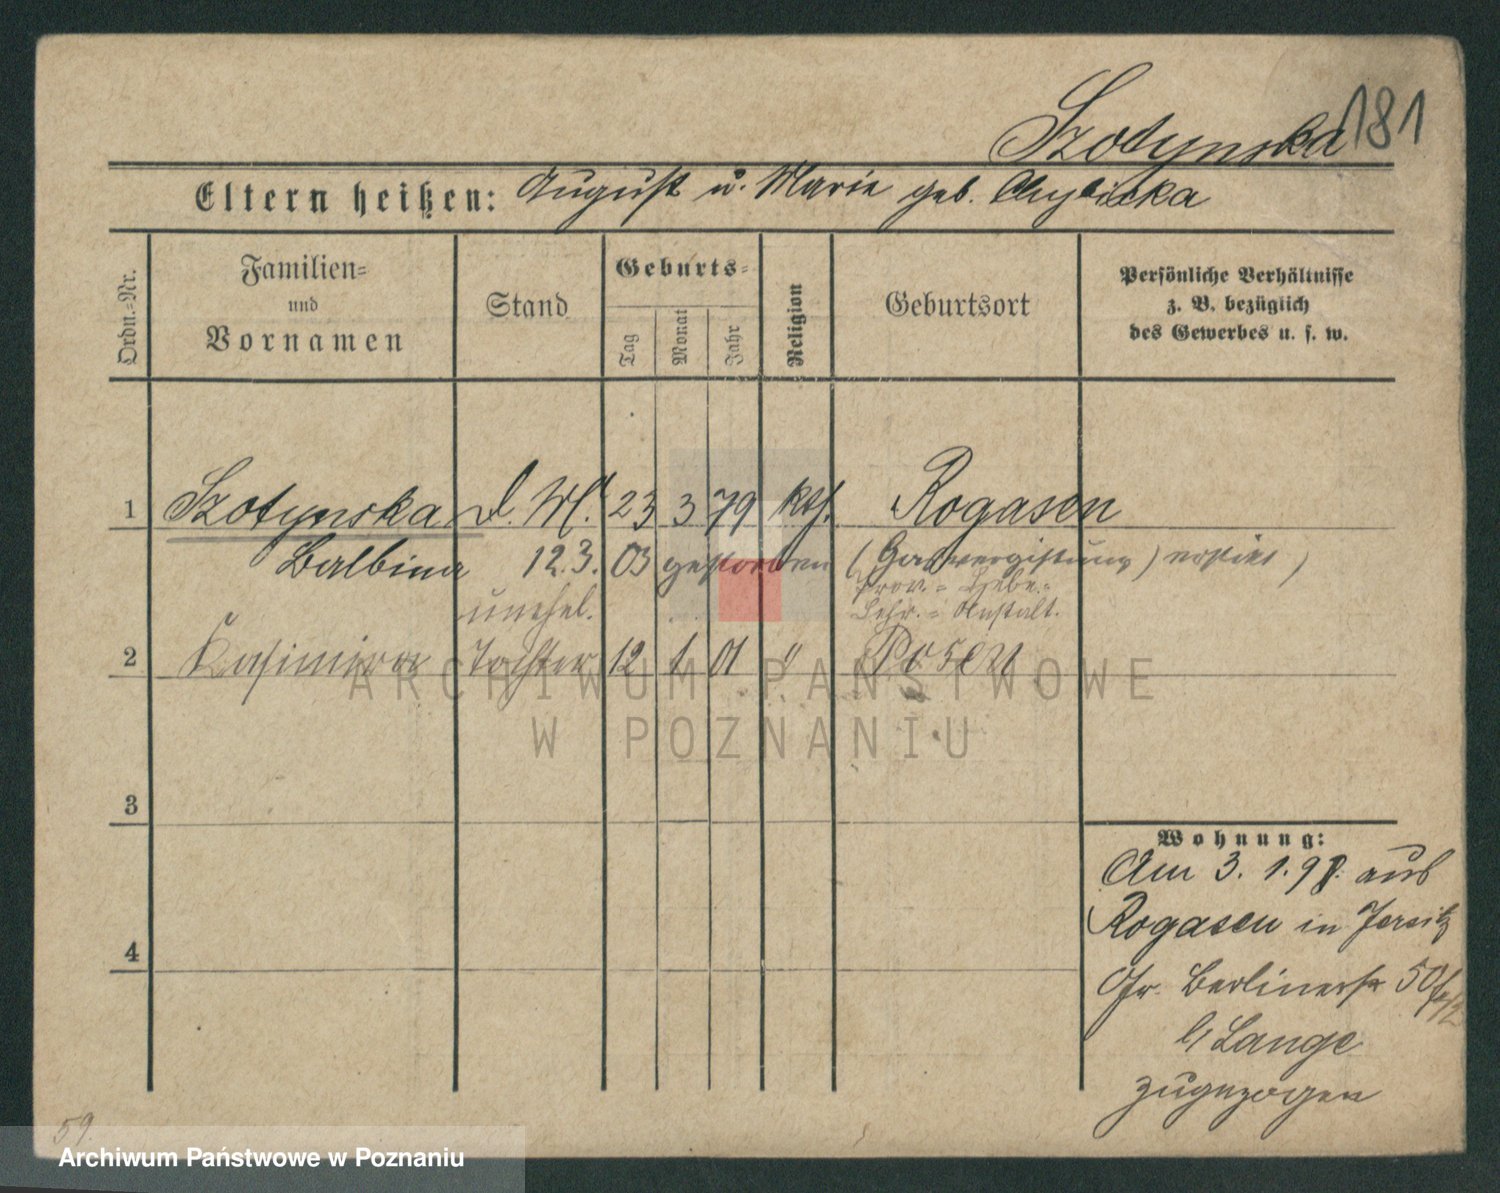 Szotynska 181
Eltern heißen: August u. Marie geb. Chybicka
Ordn.-Nr.
Familien-
und
Vornamen
Stand
Geburts-
Tag
Monat
Jahr
Religion
Geburtsort
Persönliche Verhältnisse
z. B. bezüglich
des Gewerbes u. s. w.
1 Szotynska d. M. 23 3 79 kth. Rogasen
Balbina 12.3. 03 gestorben (Gasvergiftung) erstickt)
Prov.- Hebe.-
unehel. Lehr.- Anstalt.
2 Kasimira Tochter 12 1 01 " Posen
ARCHIWUM PAŃSTWOWE
W POZNANIU
3
4
Wohnung:
Am 3. 1. 98. aus
Rogasen in Jersitz
Gr. Berlinerstr 50
b/ Lange
zugezogen
59.
Archiwum Państwowe w Poznaniu